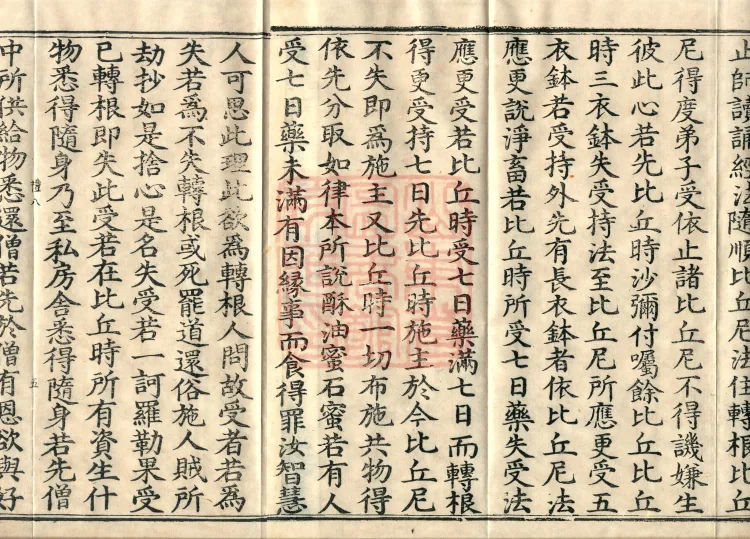 止師讀誦經法隨順比丘尼法住轉根比丘
尼得度弟子受依止諸比丘尼不得譏嫌生
彼此心若先比丘時沙彌付囑餘比丘比丘
時三衣鉢失受持法至比丘尼所應更受五
衣鉢若受持外先有長衣鉢者依比丘尼法
應更說淨畜若比丘時所受七日藥失受法
應更受若比丘時受七日藥滿七日而轉根
得更受持七日先比丘時施主於今比丘尼
不失即為施主又比丘時一切布施共物得
依先分取如律本所說酥油蜜石蜜若有人
受七日藥未滿有因緣事而食得罪汝智慧
人可思此理此欲為轉根人問故受者若為
失若為不失轉根或死罷道還俗施人賊所
劫抄如是捨心是名失受若一訶羅勒果受
已轉根即失此受若在比丘時所有資生什
物悉得隨身乃至私房舍悉得隨身若先僧
中所供給物悉還僧若先於僧有恩欲與好